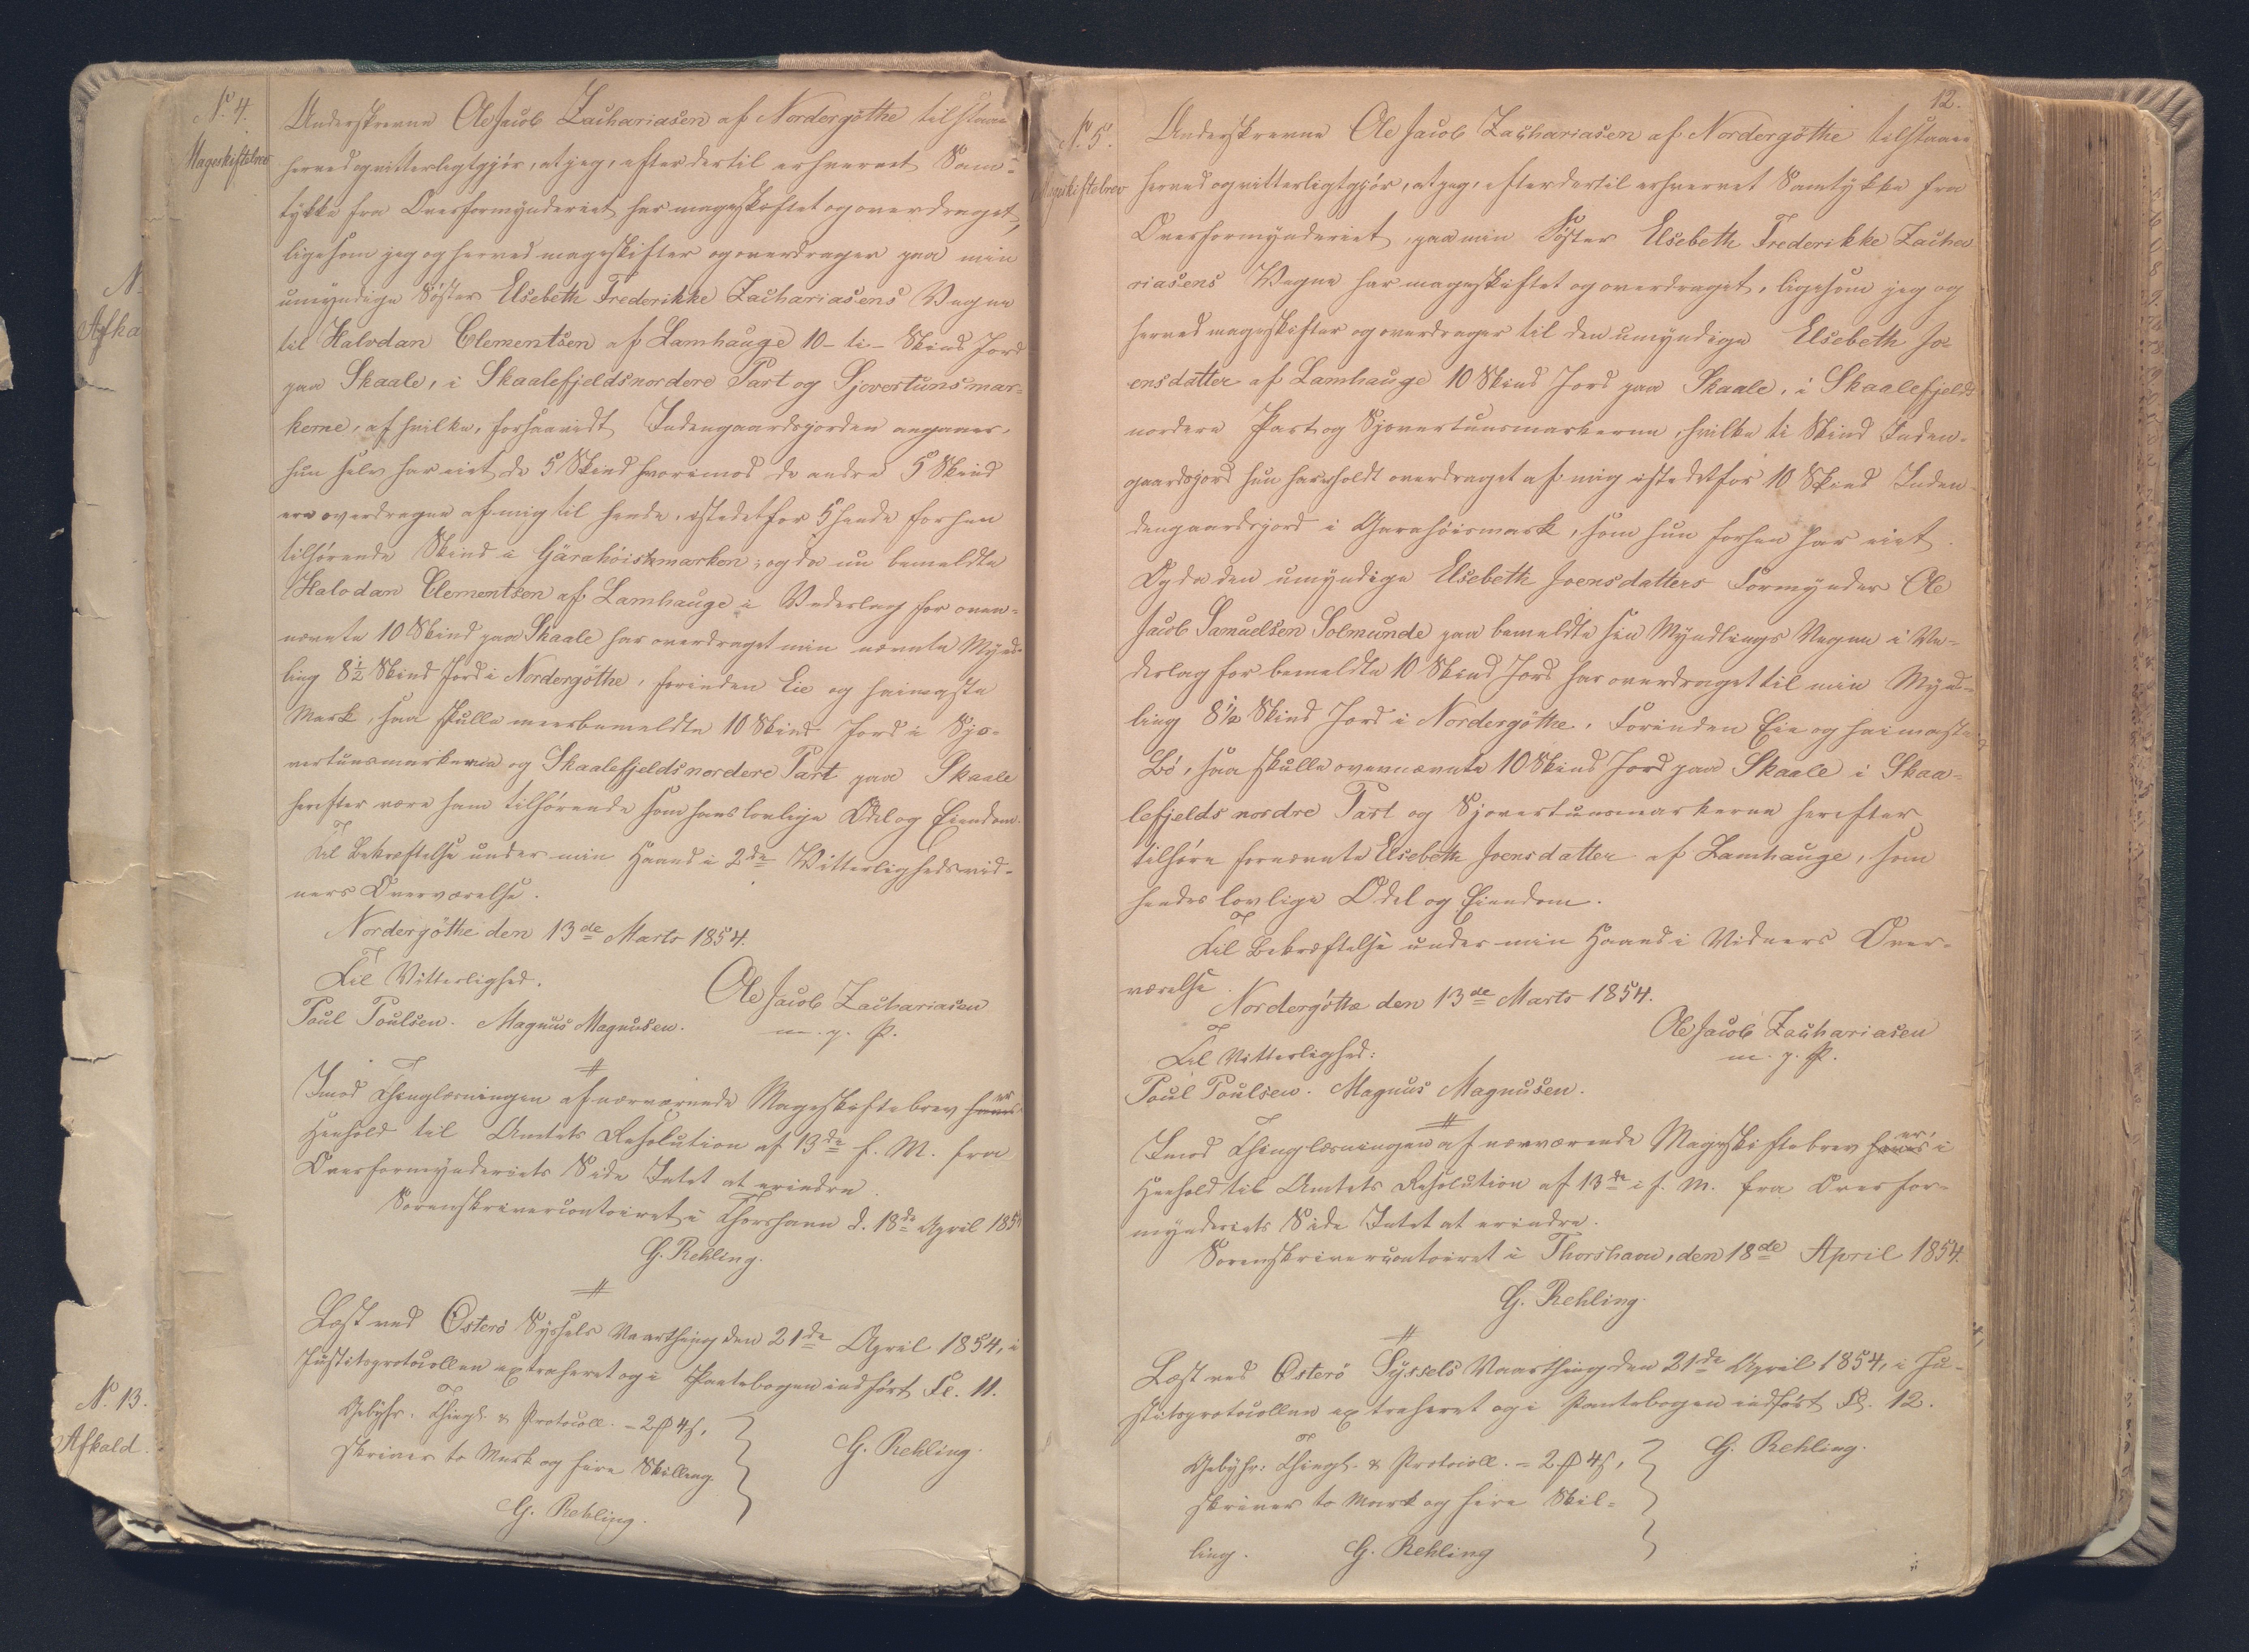 N. 4.
Mageskiftebrev
Underskrevne Ole Jacob Zachariasen af Nordergöthe tilstaaer
herved og vitterligtgjör, at jeg, efter dertil erhvervet Sam-
tykke fra Overformynderiet har mageskiftet og overdraget,
ligesom jeg og herved mageskifter og overdrager paa min
umyndige Söster Elsebeth Frederikke Zachariasens Vegne
til Halvdan Clementsen af Lamhauge 10 - ti - Skind Jord
paa Skaale, i Skaalefjelds nordere Part og Sjovertunsmar-
kerne, af hvilke, forsaavidt Indengaardsjorden angaaer,
hun selv har eiet de 5 Skind hvorimod de andre 5 Skind
ere overdragne af mig til hende, istedetfor 5 hende forhen
tilhörende Skind i Gärahöismarken; og da nu bemeldte
Halvdan Clementsen af Lamhauge i Vederlag for oven-
nævnte 10 Skind paa Skaale har overdraget min nævnte Mynd-
ling 8½ Skind Jord i Nordergöthe, forinden Eie og heimaste
Mark, saa skulle meerbemeldte 10 Skind Jord i Sjo-
vertunsmarkerne og Skaalefjelds nordere Part paa Skaale
herefter være ham tilhörende som hans lovlige Odel og Eiendom.
Til Bekræftelse under min Haand i 2de Vitterlighedsvid-
ners Overværelse.
Nordergöthe den 13de Marts 1854.
Til Vitterlighed.
Ole Jacob Zachariasen
Poul Poulsen. Magnus Magnusen.
m. p. P.
Imod Thinglæsningen af nærværende Mageskiftebrev haves er i
Henhold til Amtets Resolution af 13de f. M. fra
Overformynderiets Side Intet at erindre.
Sorenskrivercontoiret i Thorshavn d. 18de April 1854
G. Rehling.
Læst ved Österö Syssels Vaarthing den 21de April 1854, i
Justitsprotocollen extraheret og i Pantebogen indfört Fol. 11.
Gebyhr. Thingl. & Protocoll. = 2 ℳ 4 ß,
skriver to Mark og fire Skilling.
G. Rehling.
G. Rehling.
N. 13.
Afkald.
12.
N. 5.
Mageskiftebrev
Underskrevne Ole Jacob Zachariasen af Nordergöthe tilstaaer
herved og vitterligtgjör, at jeg, efter dertil erhvervet Samtykke fra
Overformynderiet, paa min Söster Elsebeth Frederikke Zacha-
riasens Vegne har mageskiftet og overdraget, ligesom jeg og
herved mageskifter og overdrager til den umyndige Elsebeth Jo-
ensdatter af Lamhauge 10 Skind Jord paa Skaale, i Skaalefjelds
nordere Part og Sjovertunsmarkerne, hvilke ti Skind Inden-
gaardsjord hun har holdt overdraget af mig istedetfor 10 Skind Inden-
dengaardsjord i Garahöismark, som hun forhen har eiet.
Og da den umyndige Elsebeth Joensdatters Formynder Ole
Jacob Samuelsen Solmunde paa bemeldte sin Myndlings Vegne i Ve-
derlag for bemeldte 10 Skind Jord har overdraget til min Mynd-
ling 8½ Skind Jord i Nordergöthe, Forinden Eie og heimaste
Bö, saa skulle ovennævnte 10 Skind Jord paa Skaale i Skaa-
lefjelds nordre Part og Sjovertunsmarkerne herefter
tilhöre fornævnte Elsebeth Joensdatter af Lamhauge, som
hendes lovlige Odel og Eiendom.
Til Bekræftelse under min Haand i Vidners Over-
værelse.
Nordergöthe den 13de Marts 1854.
Ole Jacob Zachariasen
m. p. P.
Til Vitterlighed:
Poul Poulsen. Magnus Magnusen.
Imod Thinglæsningen af nærværende Mageskiftebrev haves er, i
Henhold til Amtets Resolution af 13de i f. M. fra Overfor-
mynderiets Side Intet at erindre.
Sorenskrivercontoiret i Thorshavn, den 18de April 1854.
G. Rehling.
Læst ved Österö Syssels Vaarthing den 21de April 1854, i Ju-
stitsprotocollen extraheret og i Pantebogen indfört Fol. 12.
Gebyhr: Thingl. & Protocoll. = 2 ℳ 4 ß,
G. Rehling.
skriver to Mark og fire Skil-
ling. G. Rehling